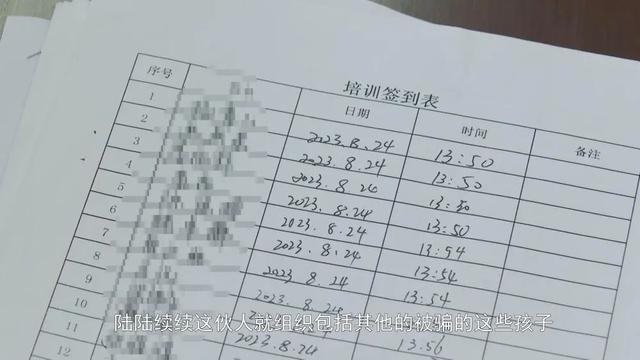 培训签到表
序号 日期 时间 备注
1 2023.8.24 13:50
2 2023.8.24 13:50
3 2023.8.24 13:50
4 2023.8.24 13:50
5 2023.8.24 13:54
6 2023.8.24 13:54
7 2023.8.24 13:54
8 2023.8.24
9 13:56
10 2023.8.24
12
陆陆续续这伙人就组织包括其他的被骗的这些孩子